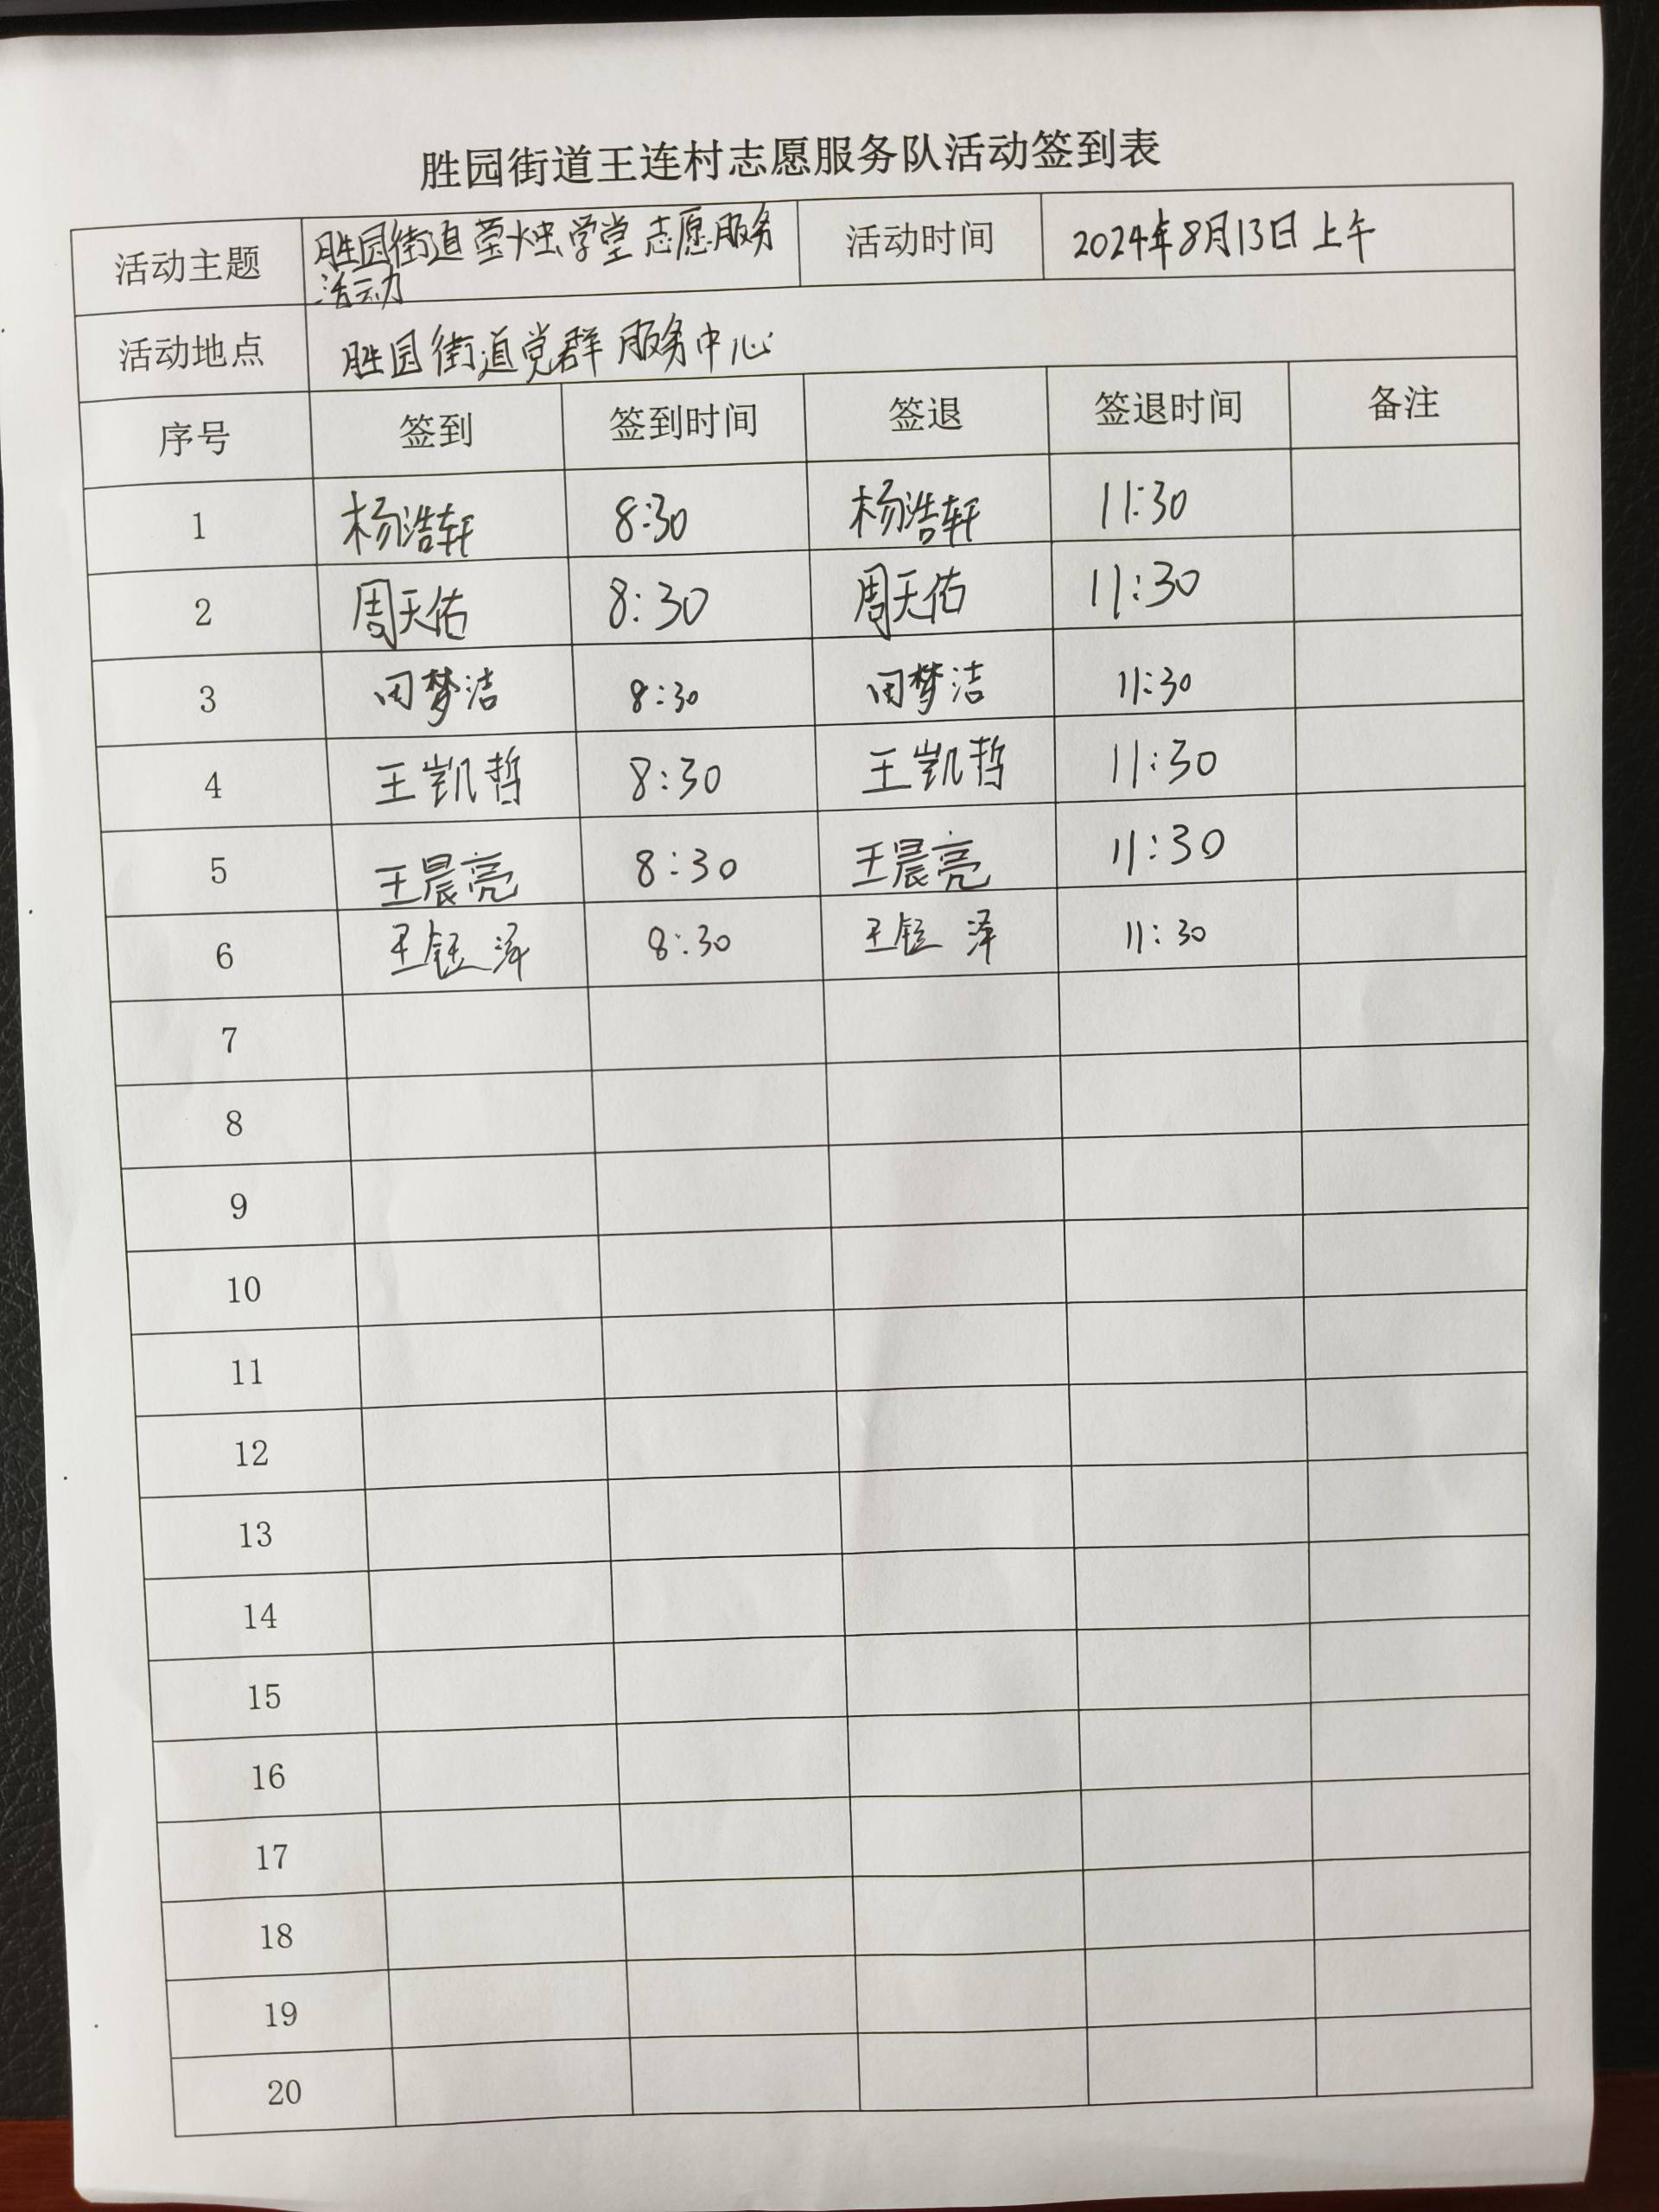 胜园街道王连村志愿服务队活动签到表
活动主题 胜园街道萤烛学堂志愿服务 活动时间 2024年8月13日上午
活动
活动地点 胜园街道党群服务中心
序号 签到 签到时间 签退 签退时间 备注
1 杨浩轩 8:30 杨浩轩 11:30
2 周天佑 8:30 周天佑 11:30
3 田梦洁 8:30 田梦洁 11:30
4 王凯哲 8:30 王凯哲 11:30
5 王晨亮 8:30 王晨亮 11:30
6 王钰泽 8:30 王钰泽 11:30
7
8
9
10
11
12
13
14
15
16
17
18
19
20